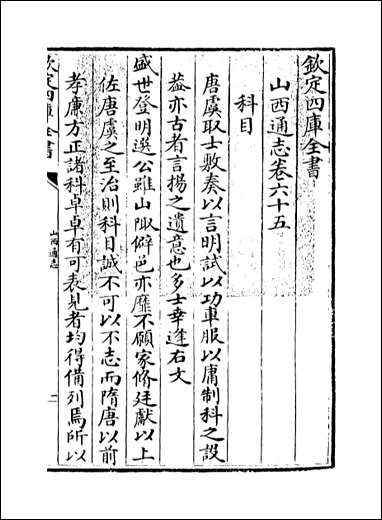 欽定四庫全書
山西通志卷六十五
科目
唐虞取士敷奏以言明試以功車服以庸制科之設
葢亦古者言揚之遺意也多士幸逢右文
盛世登明選公雖山陬僻邑亦靡不願家脩廷獻以上
佐唐虞之至治則科目誠不可以不志而隋唐以前
孝廉方正諸科卓卓有可表見者均得備列焉所以
欽定四庫全書
山西通志
一